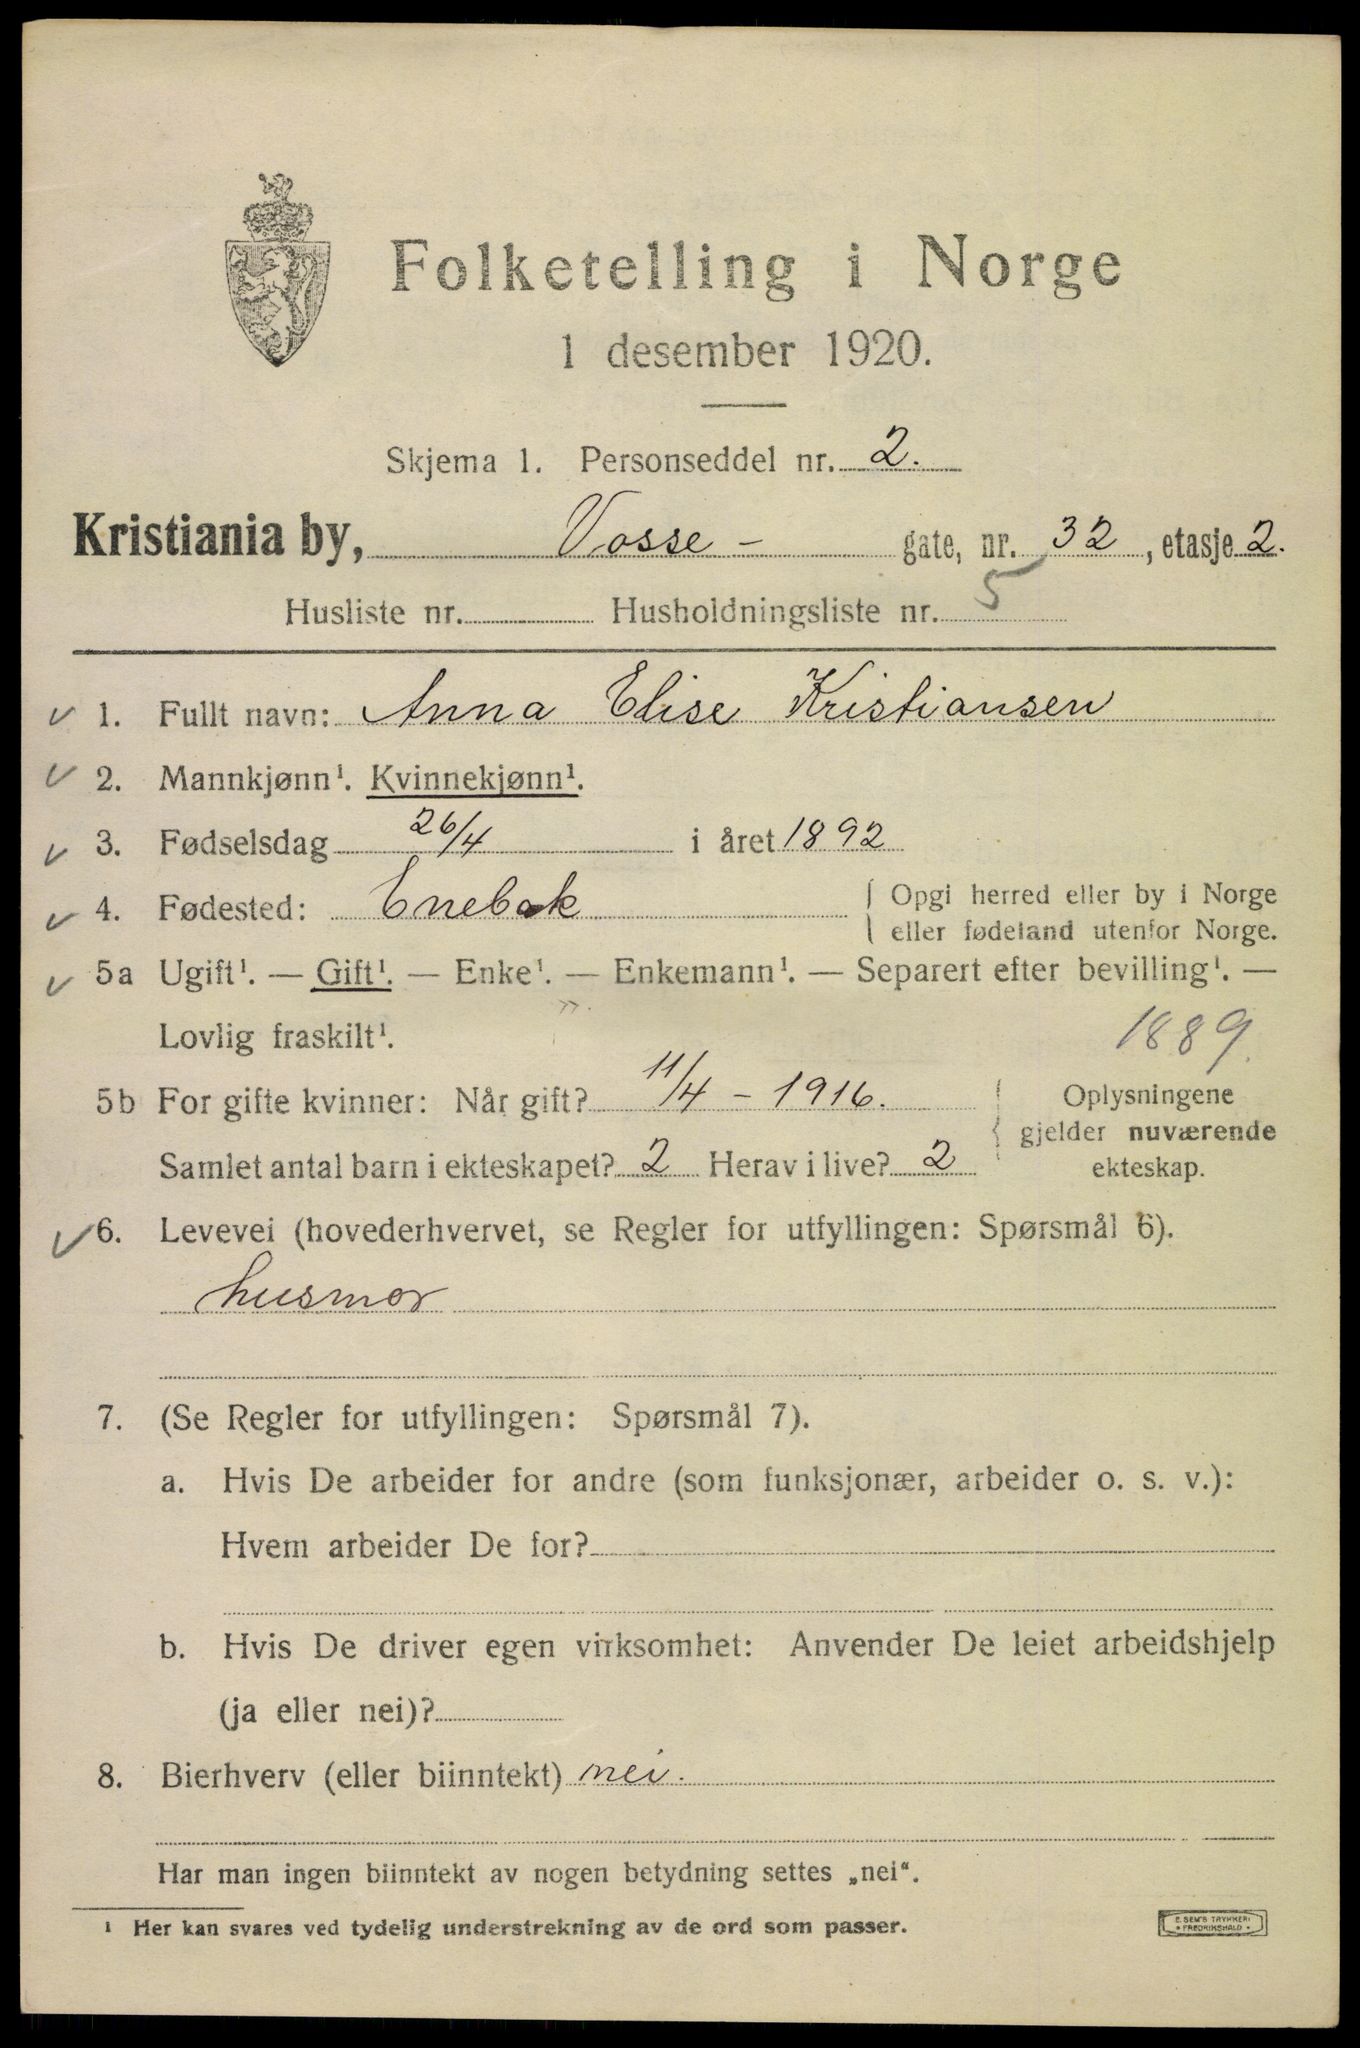 Folketelling i Norge
1 desember 1920.
Skjema 1. Personseddel nr. 2.
Kristiania by, Vosse - gate, nr. 32, etasje 2.
Husliste nr. Husholdningsliste nr. 5
1. Fullt navn: Anna Elise Kristiansen
2. Mannkjønn¹. Kvinnekjønn¹.
3. Fødselsdag 26/4 i året 1892
4. Fødested: Enebak { Opgi herred eller by i Norge
eller fødeland utenfor Norge.
5a Ugift¹. — Gift¹. — Enke¹. — Enkemann¹. — Separert efter bevilling¹. —
Lovlig fraskilt¹. 1889.
5b For gifte kvinner: Når gift? 11/4 - 1916. { Oplysningene
gjelder nuværende
Samlet antal barn i ekteskapet? 2 Herav i live? 2 ekteskap.
6. Levevei (hovederhvervet, se Regler for utfyllingen: Spørsmål 6).
husmor
7. (Se Regler for utfyllingen: Spørsmål 7).
a. Hvis De arbeider for andre (som funksjonær, arbeider o. s. v.):
Hvem arbeider De for?
b. Hvis De driver egen virksomhet: Anvender De leiet arbeidshjelp
(ja eller nei)?
8. Bierhverv (eller biinntekt) nei.
Har man ingen biinntekt av nogen betydning settes „nei“.
¹ Her kan svares ved tydelig understrekning av de ord som passer.
E. SEM'S TRYKKERI
FREDRIKSHALD